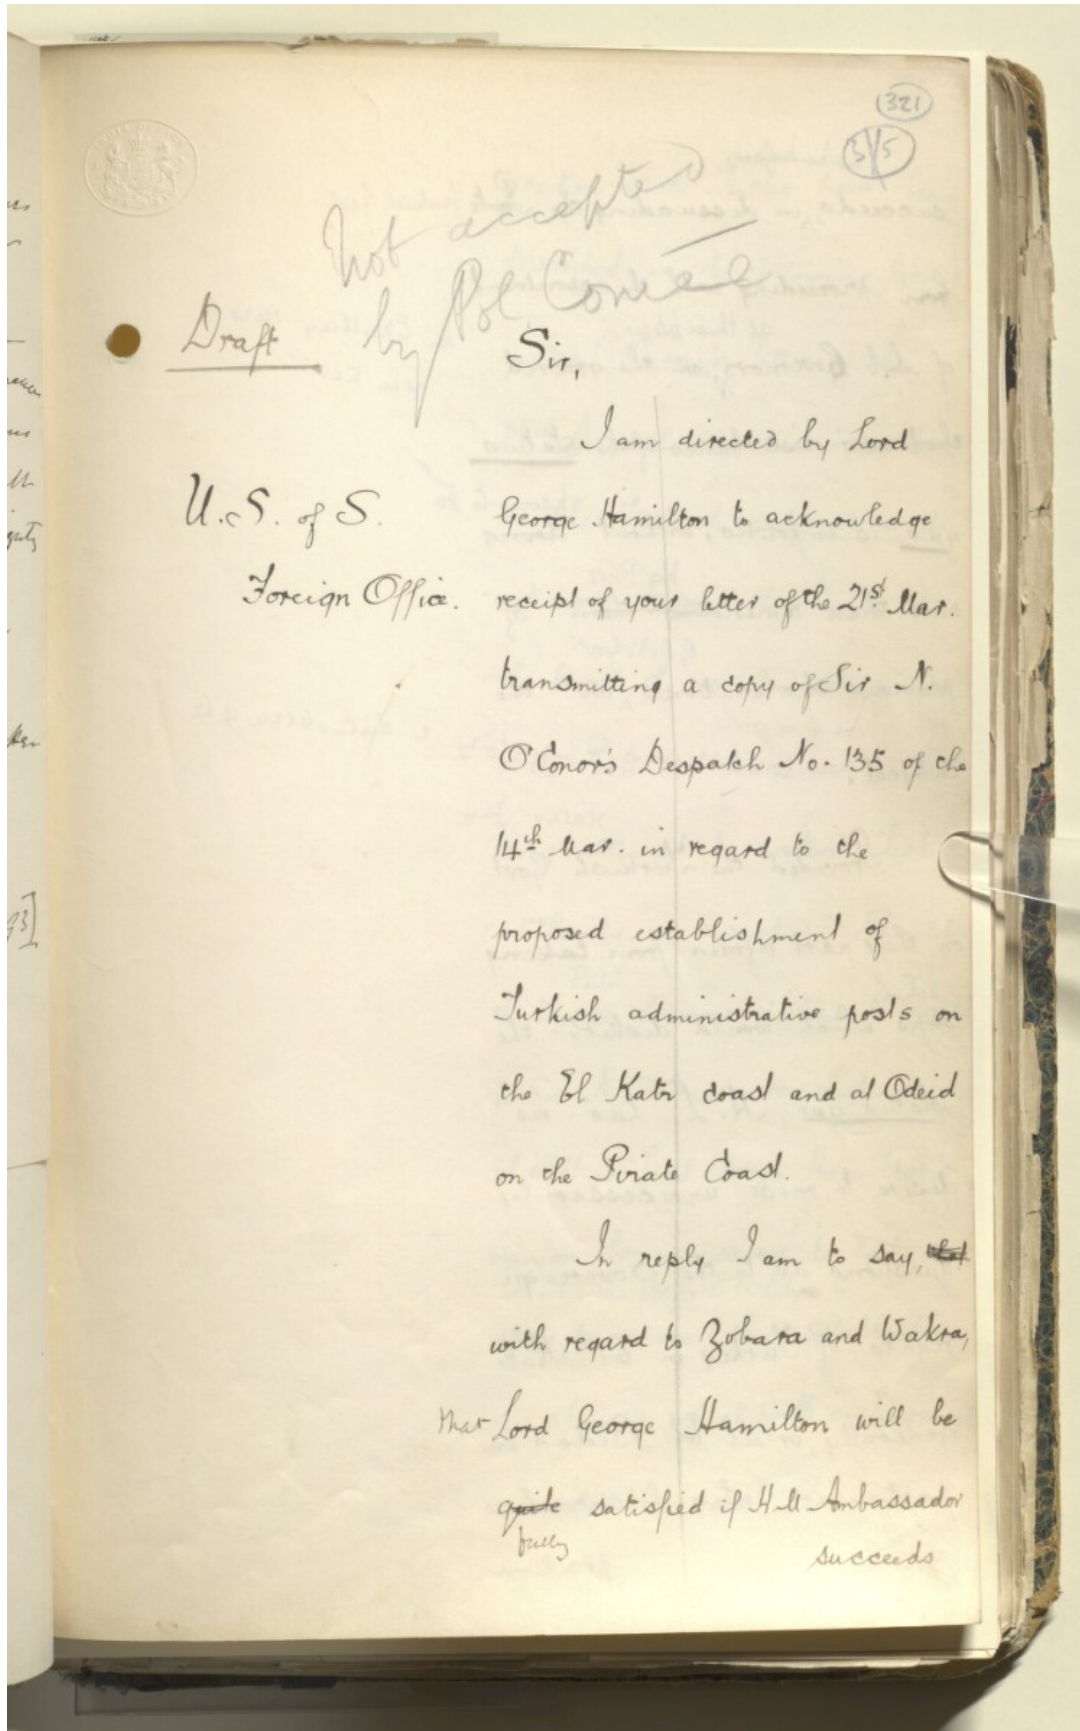 321
315
Not accepted
by Pol Comtee
Draft
Sir,
I am directed by Lord
U.S. of S.
George Hamilton to acknowledge
Foreign Office.
receipt of your letter of the 21st Mar.
transmitting a copy of Sir N.
O'Conor's Despatch No. 135 of the
14th Mar. in regard to the
proposed establishment of
Turkish administrative posts on
the El Katr coast and at Odeid
on the Pirate Coast.
In reply I am to say, that
with regard to Zobara and Wakra,
that Lord George Hamilton will be
quite satisfied if H.M Ambassador
fully
succeeds